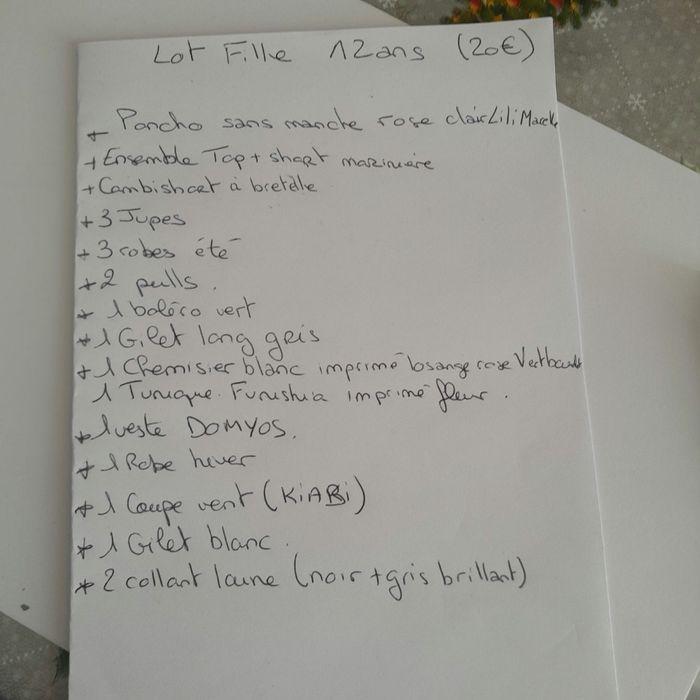 Lot Fille 12ans (20€)
+ Poncho sans manche rose clair Lili
+ Ensemble Top + short marinière
+ Combishort à bretelle
+ 3 Jupes
+ 3 robes été
+ 2 pulls.
+ 1 boléro vert
+ 1 Gilet long gris
+ 1 Chemisier blanc imprimé losange rose
1 Tunique Funushia imprimé fleur.
+ 1 veste DOMYOS.
+ 1 Robe hiver
+ 1 Coupe vent (KiABi)
* 1 Gilet blanc.
* 2 collant laine (noir + gris brillant)